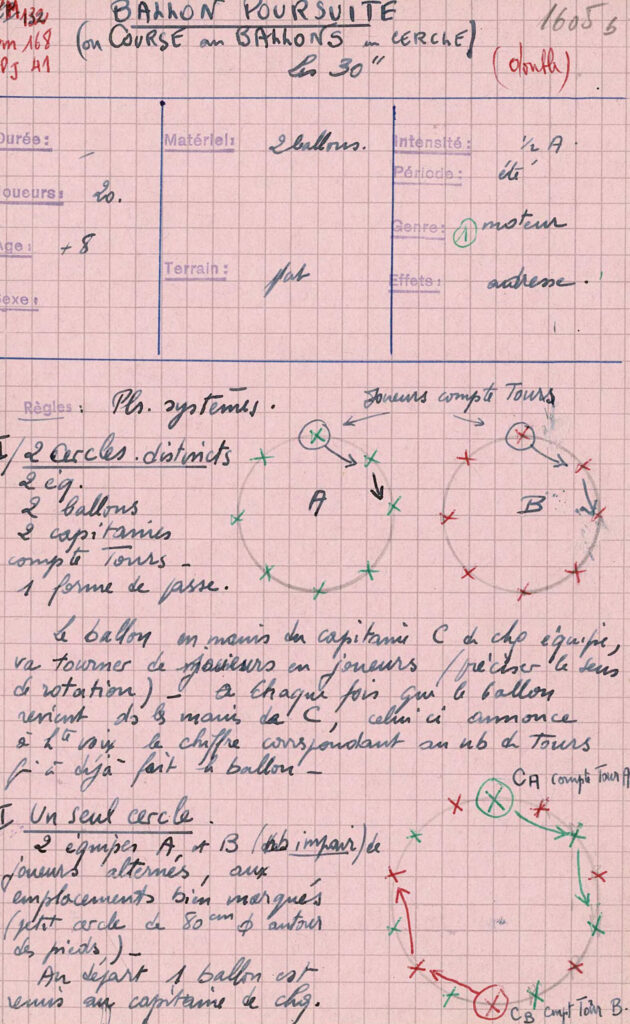 132
BALLON POURSUITE
1605 b
168
(ou COURSE au BALLONS en CERCLE)
PJ 41
Les 30"
(double)
Durée :
Matériel :
2 ballons.
Intensité :
1/2 A
Période :
été
Joueurs :
20.
Genre :
1 moteur
Age :
+8
Terrain :
plat
Effets :
adresse.
Sexe :
Règles :
Pls. systèmes.
Joueurs compte Tours
I/ 2 cercles distincts
2 éq.
A
B
2 ballons
2 capitaines
compte Tours –
1 forme de passe.
Le ballon en mains du capitaine C de chq équipe,
va tourner de joueurs en joueurs (préciser le sens
de rotation) – à chaque fois que le ballon
revient ds les mains de C, celui ci annonce
à Hte voix le chiffre correspondant au nb de Tours
déjà fait le ballon –
CA compte Tour A
I Un seul cercle.
2 équipes A et B (nb impair) de
joueurs alternés, aux
emplacements bien marqués
(petit cercle de 80cm ϕ autour
des pieds,) –
Au départ 1 ballon est
remis au capitaine de chq.
CB compt Tour B.